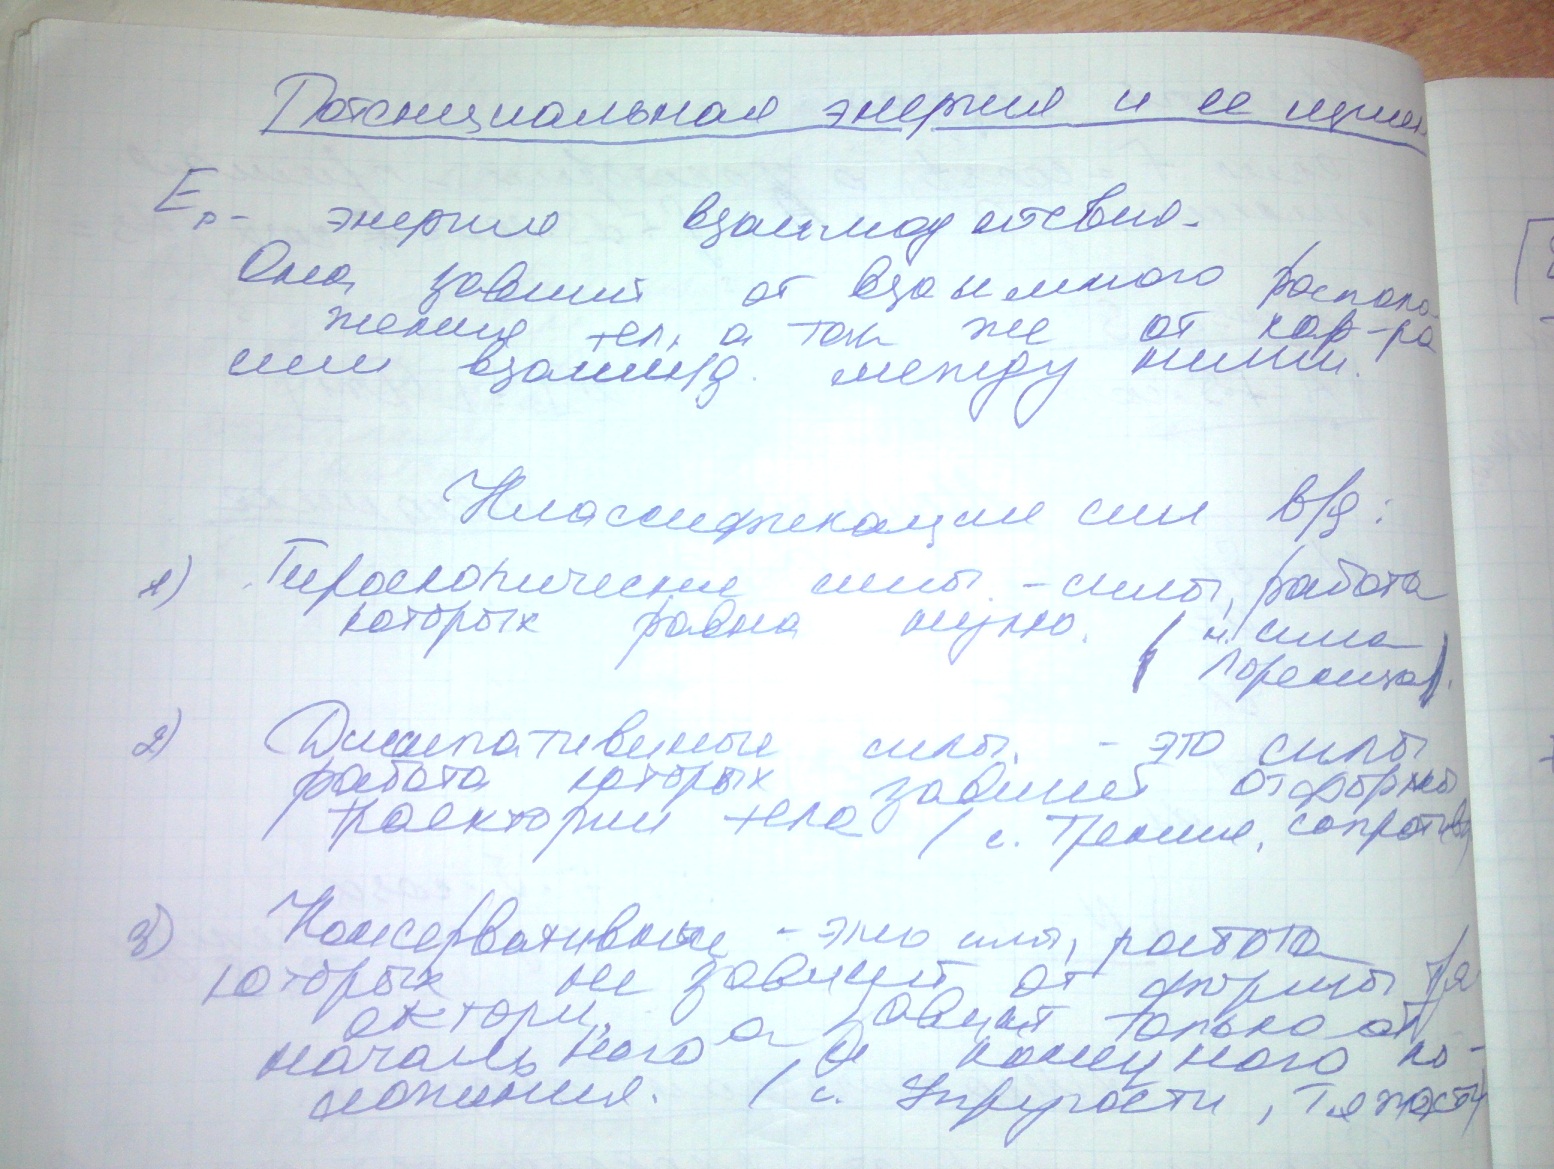 Потенциальная энергия и ее
Ep - энергия взаимодействия.
Она зависит от взаимного располо-
жения тел, а так же от хар-ра
сил взаим/д. между ними.
Классификация сил в/д:
1) Гироскопические силы. - силы, работа
которых равна нулю. (н. сила
Лоренца).
2) Диссипативные силы. - это силы
работа которых зависит от формы
траектории тела (с. трения, сопротив)
3) Консервативные - это силы, работа
которых не зависит от формы тра
ектории, а зависит только от
начального и конечного по-
ложения. (с. Упругости, Тяжести)